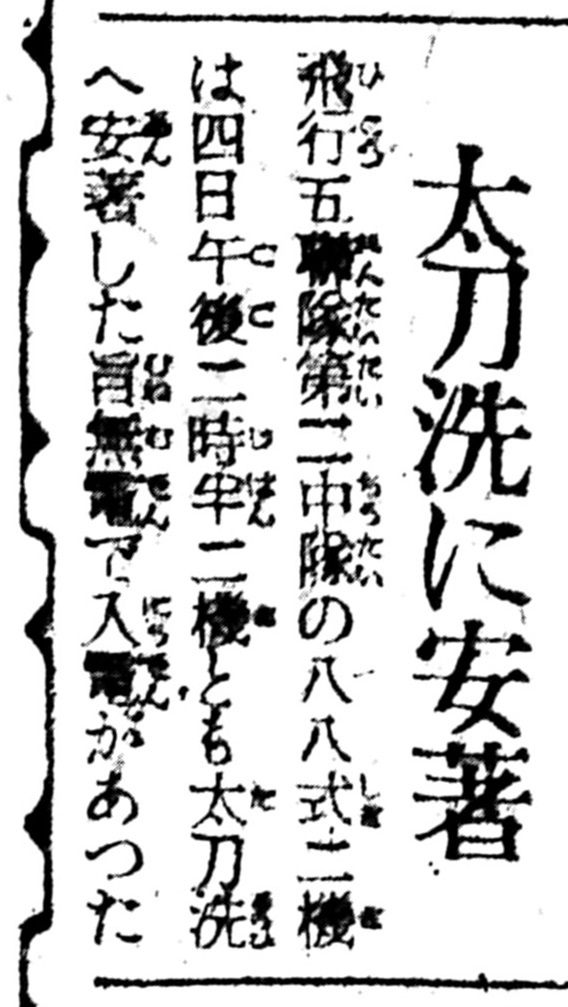 太刀洗に安著
飛行五聯隊第二中隊の八八式二機
は四日午後二時半二機とも太刀洗
へ安著した旨無電で入電があつた